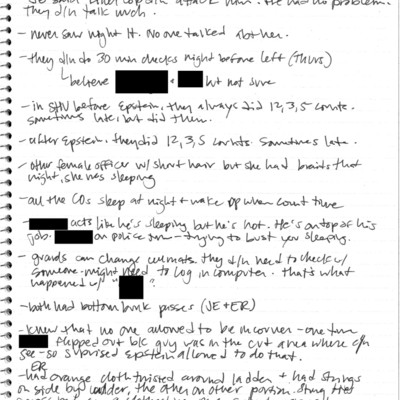 JE said that cop did attack him. He had no problem.
they d/n talk much.
- never saw night Lt. No one talked abt her.
- they d/n do 30 min checks night before left (Thurs)
believe + but not sure
- in SHU before Epstein, they always did 12, 3, 5 counts.
sometimes late, but did them.
- after Epstein, they did 12, 3, 5 counts. Sometimes late.
- other female officer w/ short hair but she had braids that
night, she was sleeping
- all the COs sleep at night + wake up when count there
- acts like he's sleeping but he's not. He's on top of his
job. on police — trying to bust you sleeping.
- guards can change cellmates. they d/n need to check w/
someone. might need to log in computer. that's what
happened w/ " " ?
- both had bottom bunk passes (JE + ER)
- knew that no one allowed to be in corner - one time
flipped out b/c guy was in the cut area where c/n
see - so surprised Epstein allowed to do that.
ER
- had orange cloth twisted around ladder + had strings
on side by ladder, the other on other portion. String